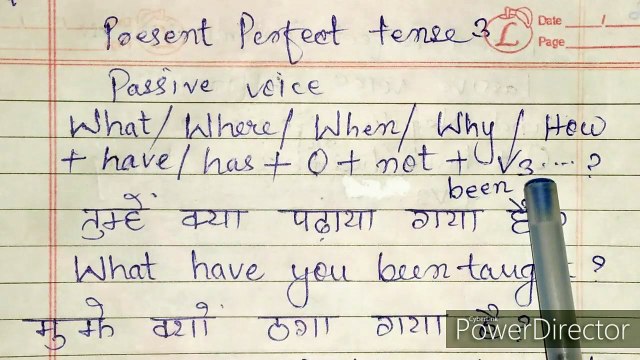 Present Perfect tense 3
Date 1
Page
Passive voice
What / Where / When / Why / How
+ have / has + O + not + V3 .... ?
been
तुम्हें क्या पढ़ाया गया है
What have you been taug ?
मुझे क्यों ठगा गया है ?
CyberLink
PowerDirector